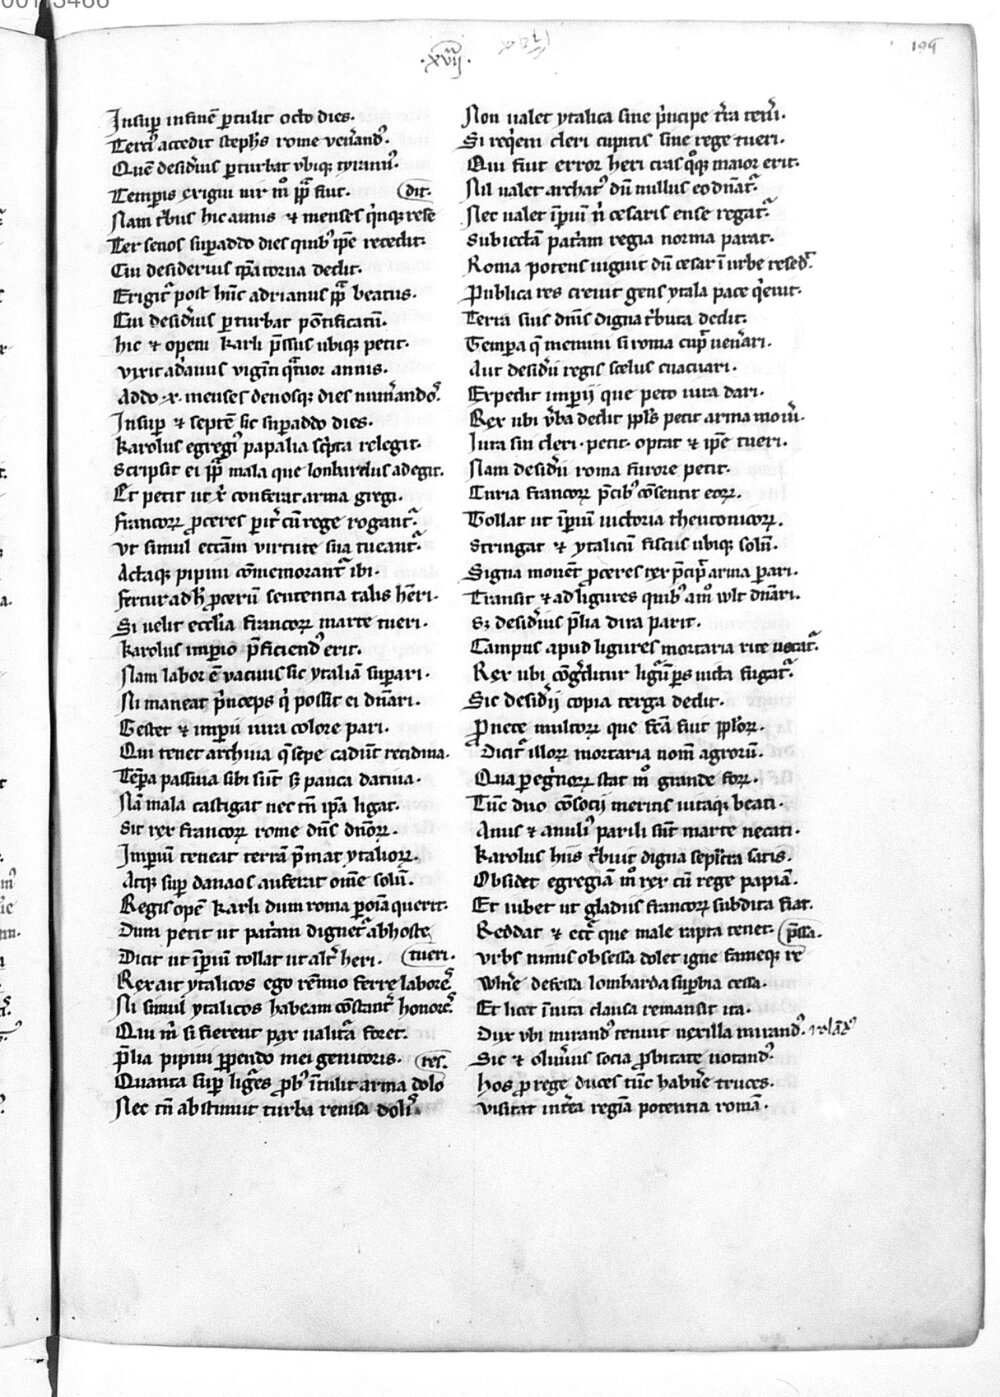 ·xvij·
194
Insup̄ in finē ꝑtulit octo dies.
Terciꝰ accedit stephꝰs rome ven̄andꝰ.
Quē desid̄ius ꝑturbat vbiqꝫ tyrannꝰ.
Temꝑis exigui vir mō pp̄a fuit.
Nam tͥbus hic annis ⁊ menses qͥnqꝫ rese dit.
Ter senos suꝑaddo dies quibꝰ ip̄e recedit.
Cui desiderius torua dedit.
Erigitᷣ post hūc adrianus pp̄a beatus.
Cui desid̄ius ꝑturbat pōtificatū.
hic ⁊ opem karli p̄ssus ubiqꝫ petit.
vixit adͥanus viginti qᷓtuor annis.
Addo ·x· menses denosqꝫ dies num̄andoˢ.
Insup̄ ⁊ septē sic suꝑaddo dies.
Karolus egregiꝰ papalia sc̄pta relegit.
Scripsit ei pp̄a mala que lonbardus adegit.
Et petit ut xͥ conferat arma gregi.
francoꝝ ꝓceres pit̄ cū rege rogantᷣ.
Vt simul ecc̄am virtute sua tueantᷣ.
Actaqꝫ pipini cōmemorantᷣ ibi.
fertur ad h̄ ꝓcerū sententia talis h̄eri.
Si velit ecclesia francoꝝ marte tueri.
Karolus imperio p̄ficiendꝰ erit.
Nam labor ē vacuus sic ytaliam suꝑari.
Ni maneat pͥnceps qͥ possit ei dn̄ari.
Gestet ⁊ imperii iura colore pari.
Qui tenet archiua qᷓ sepe cadūt recidiua.
Tēpa passiua sibi sūt sꝫ pauca datiua.
Nā mala castigat nec tn̄ ip̄a ligat.
Sit rex francoꝝ rome dn̄s dn̄oꝝ.
Imperiū teneat terrā p̄mat ytalioꝝ.
Atqꝫ suꝑ danaos auferat om̄e solū.
Regis opē karli dum roma ꝑ oīa querit.
Dum petit ut patͥam dignetᷣ ab hoste tueri.
Dicit ut īperiū tollat ut altᷣ heri.
Rex ait ytalicos ego rennuo ferre laborēˢ.
Ni simul ytalicos habeam cōstantᷣ honorēˢ.
Qui m̄ si fierent pax ualiturᷓ foret.
p̄lia pipini ꝑpendo mei genitoris.
Quanta suꝑ ligᷣes ꝓbꝰ ītulit arma dolo res.
Nec tn̄ abstinuit turba reuisa doliˢ.
Non ualet ytalica sine pͥncipe tr̄a teneri.
Si reqͥem cleri cupitis sine rege tueri.
Qui fuit error heri cras qͦqꝫ maior erit.
Nil ualet archatꝰ dū nullus eo dn̄atᷣ.
Nec ualet īperiū nͥ cesaris ense regatᷣ.
Subiectā patͥam regia norma parat.
Roma potens uiguit dū cesar ī urbe resedͥt.
Publica res creuit gens ytala pace qͥeuit.
Terra suis dn̄is digna tͥbuta dedit.
Tempa qᷓ memini si roma cupͥt uen̄ari.
Aut desid̄ii regis scelus euacuari.
Expedit imperij que peto iura dari.
Rex ubi v̄ba dedit ppl̄s petit arma mou̅i.
Iura sui cleri · petit · optat ⁊ ip̄e tueri.
Nam desid̄ii roma furore petit.
Curia francoꝝ p̄cibꝰ cōsentit eoꝝ.
Tollat ut īperiū uictoria theutonicoꝝ.
Stringat ⁊ ytalicū fiscus ubiqꝫ solū.
Signa mouēt ꝓceres rex p̄cipͥt arma pari.
Transit ⁊ ad ligures quibꝰ amō vult dn̄ari.
Sꝫ desid̄ius p̄lia dira parit.
Campus apud ligures mortaria rite uocatᷣ.
Rex ubi cōgᷣditur ligͣū ps̄ uicta fugatᷣ.
Sic desid̄ij copia terga dedit.
Pro nece multoꝝ que fc̄a fuit ppl̄oꝝ.
Dicitᷣ illoꝝ mortaria nom̄ agrorū.
Qua peregͥnoꝝ stat mō grande foꝝ.
Tūc duo cōsocij meritis uitaqꝫ beati.
Amis ⁊ amiliꝰ parili sūt marte necati.
Karolus hiis tͥbuit digna sepͣlcra satis.
Obsidet egregiā mō rex cū rege papiā.
Et iubet ut gladiis francoꝝ subdita fiat.
Reddat ⁊ ecc̄e que male rapta tenet.
Vrbs nimis obsessa dolet igne fameqꝫ re p̄ssa.
Vln̄e defessa lombarda suꝑbia cessa.
Et licet īuita clausa remansit ita.
Dux vbi mirandꝰ tenuit vexilla mirandꝰ.
Sic ⁊ oliu̅ius socia ꝓbitate notandꝰ.
hos ꝓ rege duces tūc habuēre truces.
visitat intͣea regiā potentia romā.